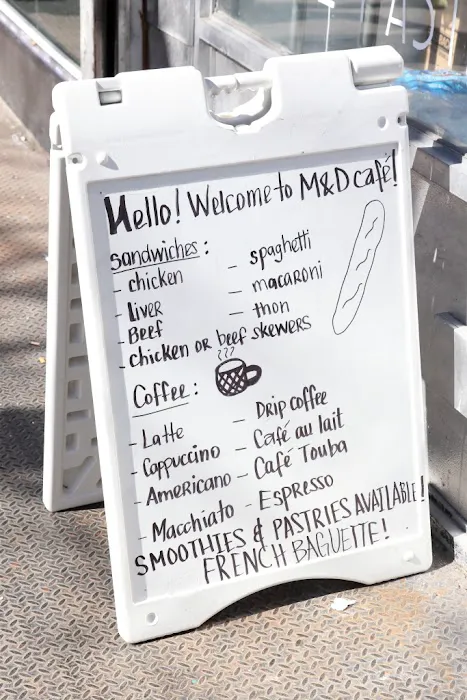 Hello! Welcome to M&D café!
Sandwiches:
- chicken - spaghetti
- Liver - macaroni
- Beef - thon
- chicken or beef skewers
Coffee:
- Latte - Drip coffee
- Cappuccino - Café au lait
- Americano - Café Touba
- Macchiato - Espresso
SMOOTHIES & PASTRIES AVAILABLE!
FRENCH BAGUETTE!